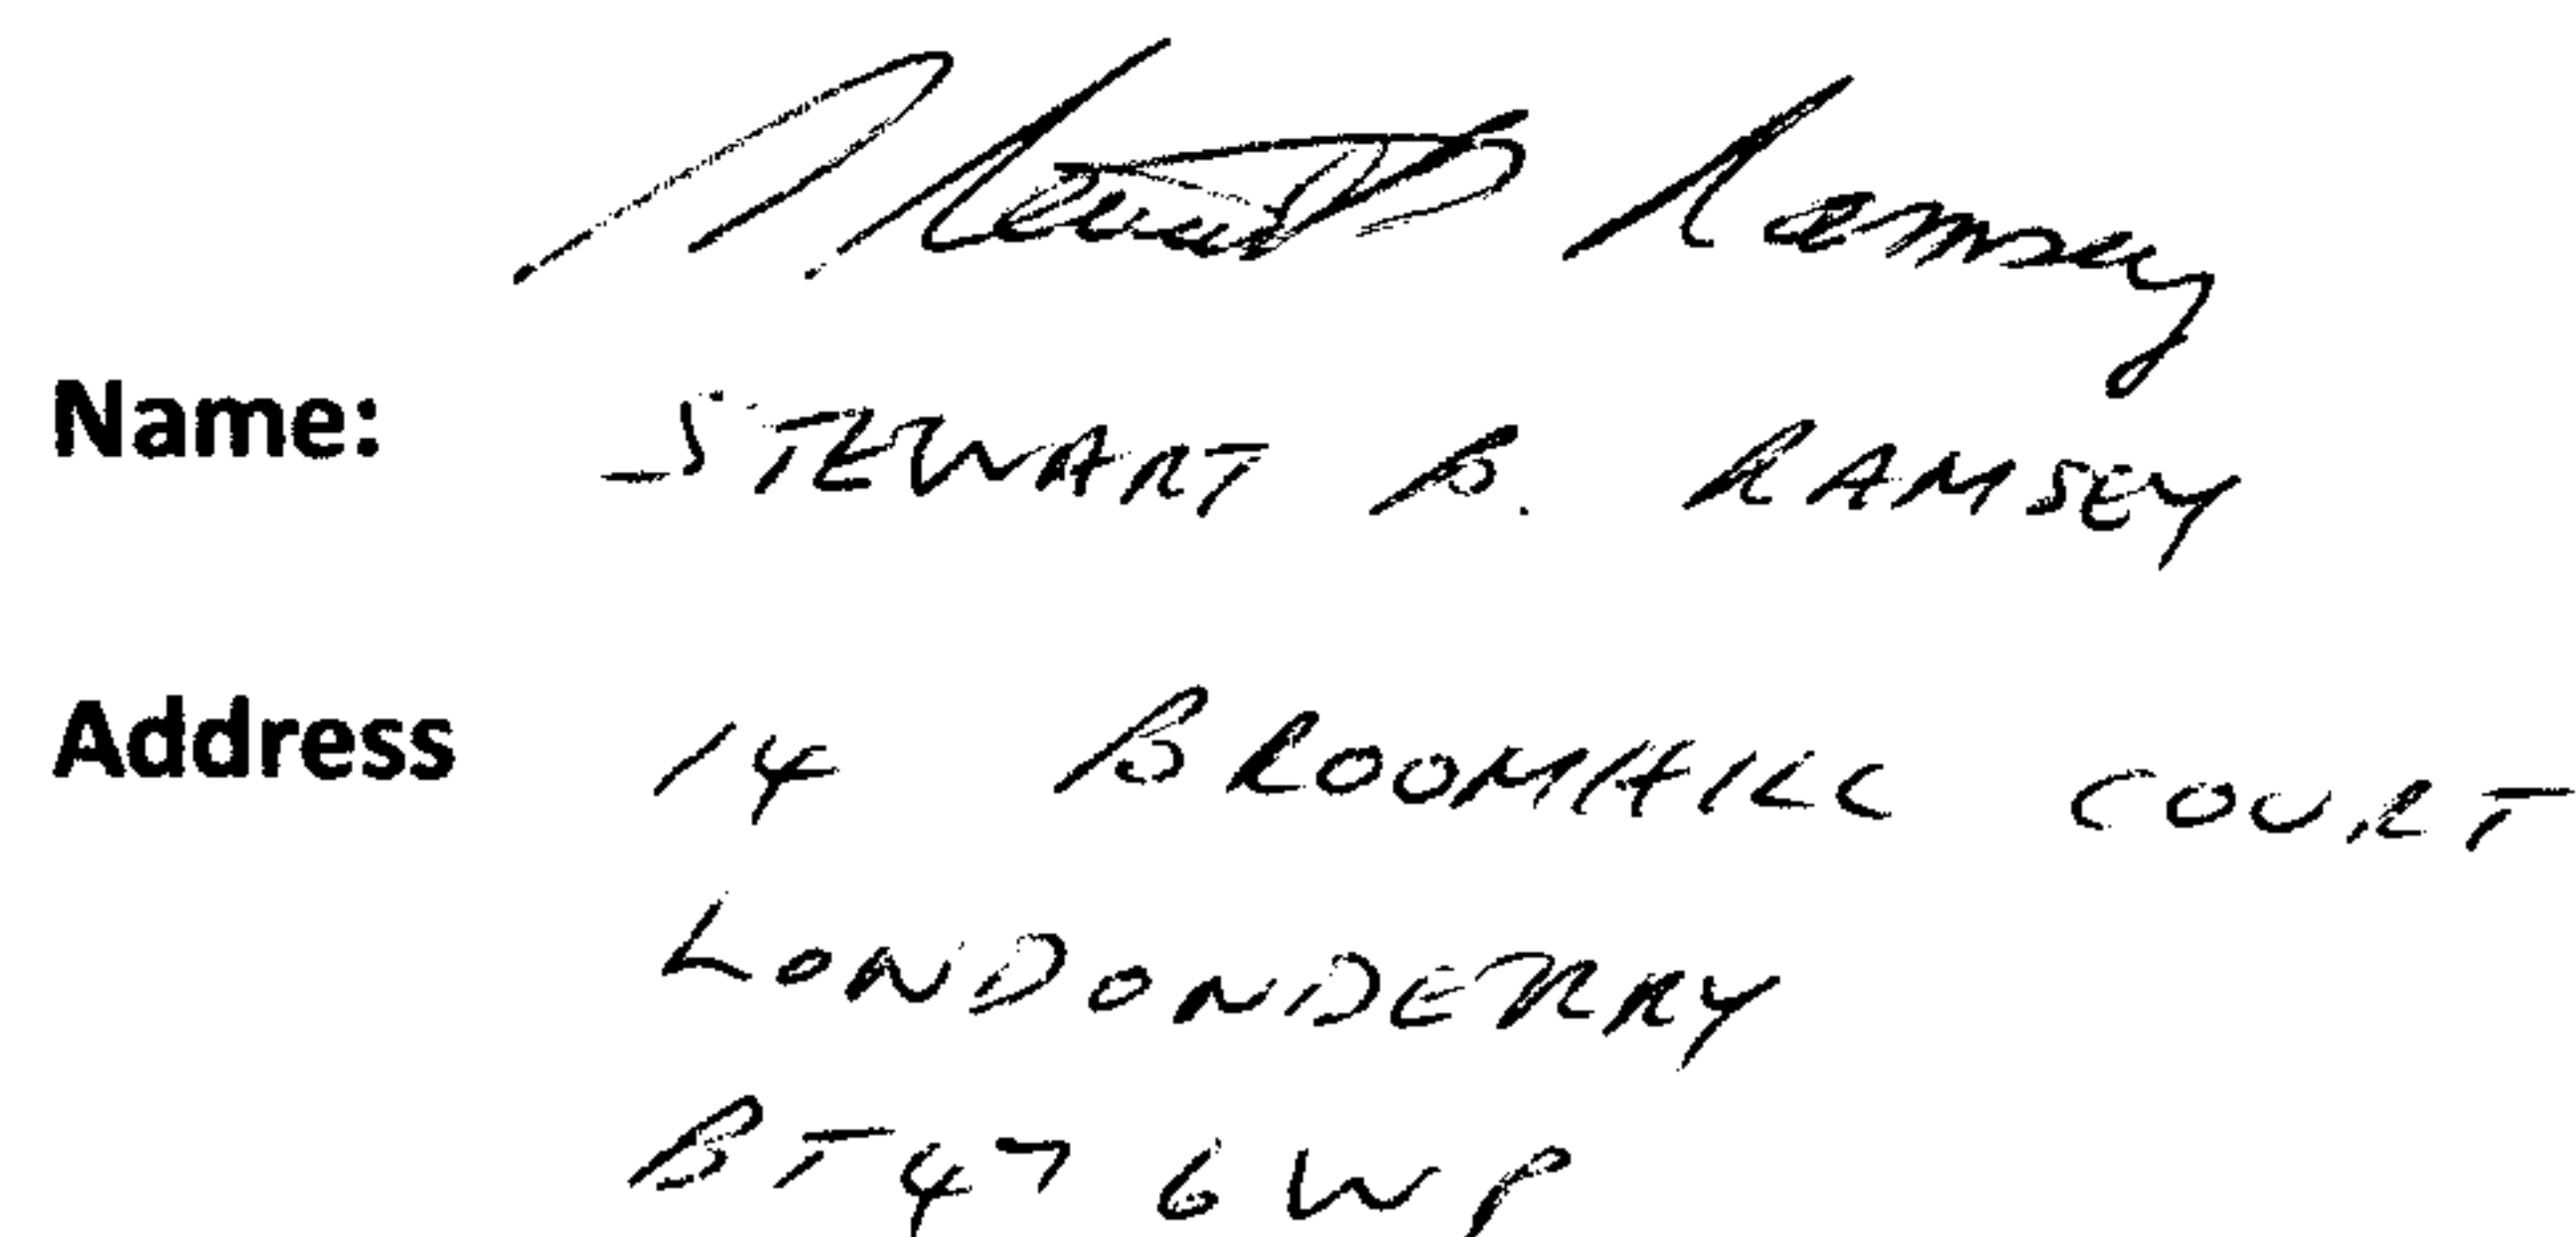 Stewart B Ramsey
Name: STEWART B. RAMSEY
Address 14 BROOMHILL COURT
LONDONDERRY
BT47 6WP